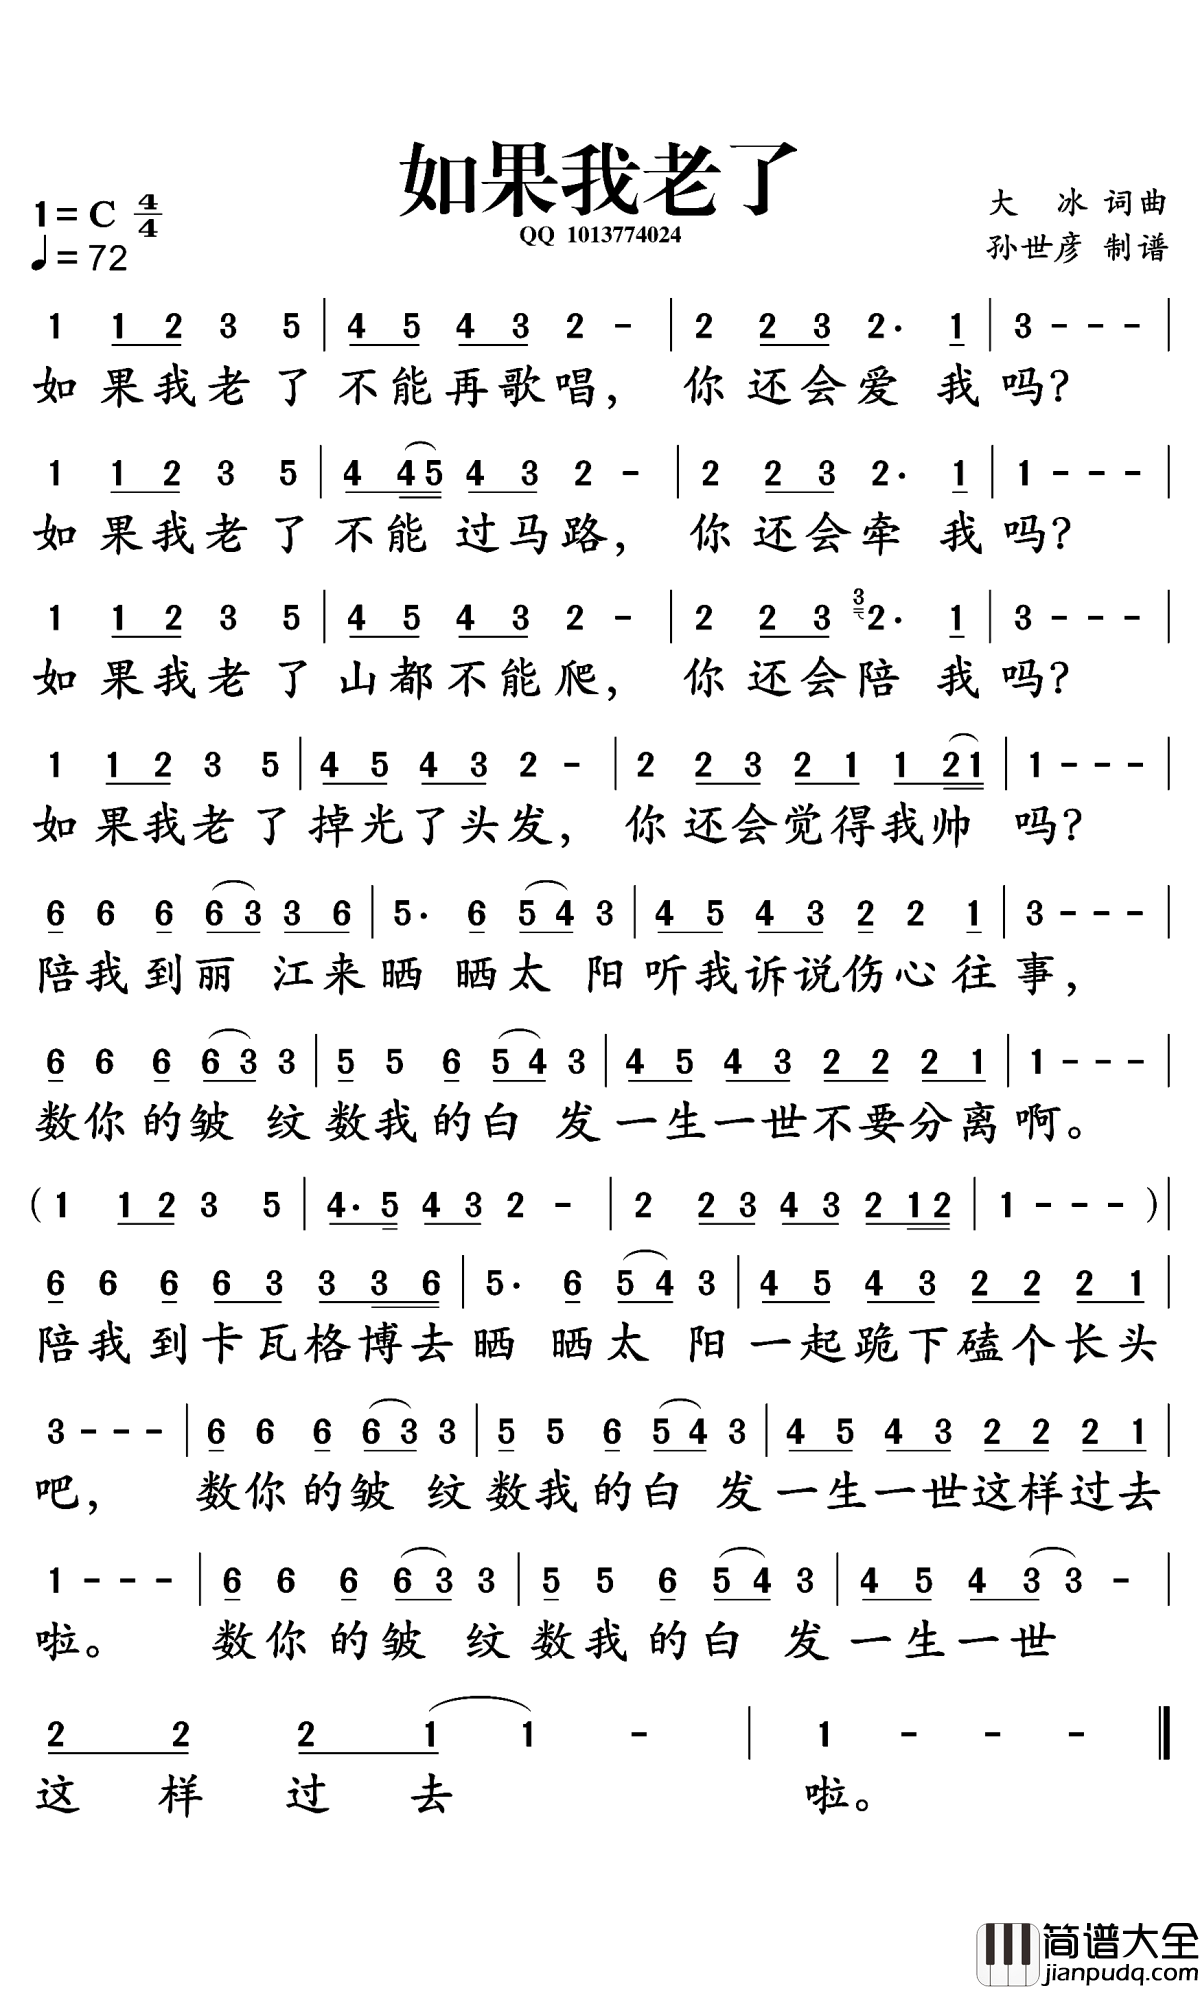 如果我老了
QQ 1013774024
1=C 4/4
♩=72
大 冰 词曲
孙世彦 制谱
1 1 2 3 5 | 4 5 4 3 2 - | 2 2 3 2· 1 | 3 - - - |
如果我老了不能再歌唱，你还会爱我吗?
1 1 2 3 5 | 4 4 5 4 3 2 - | 2 2 3 2· 1 | 1 - - - |
如果我老了不能过马路，你还会牵我吗?
1 1 2 3 5 | 4 5 4 3 2 - | 2 2 3 3 2· 1 | 3 - - - |
如果我老了山都不能爬，你还会陪我吗?
1 1 2 3 5 | 4 5 4 3 2 - | 2 2 3 2 1 1 2 1 | 1 - - - |
如果我老了掉光了头发，你还会觉得我帅吗?
6 6 6 6 3 3 6 | 5· 6 5 4 3 | 4 5 4 3 2 2 1 | 3 - - - |
陪我到丽江来晒晒太阳听我诉说伤心往事，
6 6 6 6 3 3 | 5 5 6 5 4 3 | 4 5 4 3 2 2 2 1 | 1 - - - |
数你的皱纹数我的白发一生一世不要分离啊。
( 1 1 2 3 5 | 4· 5 4 3 2 - | 2 2 3 4 3 2 1 2 | 1 - - - ) |
6 6 6 6 3 3 3 6 | 5· 6 5 4 3 | 4 5 4 3 2 2 2 1 |
陪我到卡瓦格博去晒晒太阳一起跪下磕个长头
3 - - - | 6 6 6 6 3 3 | 5 5 6 5 4 3 | 4 5 4 3 2 2 2 1 |
吧，数你的皱纹数我的白发一生一世这样过去
1 - - - | 6 6 6 6 3 3 | 5 5 6 5 4 3 | 4 5 4 3 3 - |
啦。数你的皱纹数我的白发一生一世
2 2 2 1 1 - | 1 - - - ‖
这样过去啦。
简谱大全
jianpudq.com